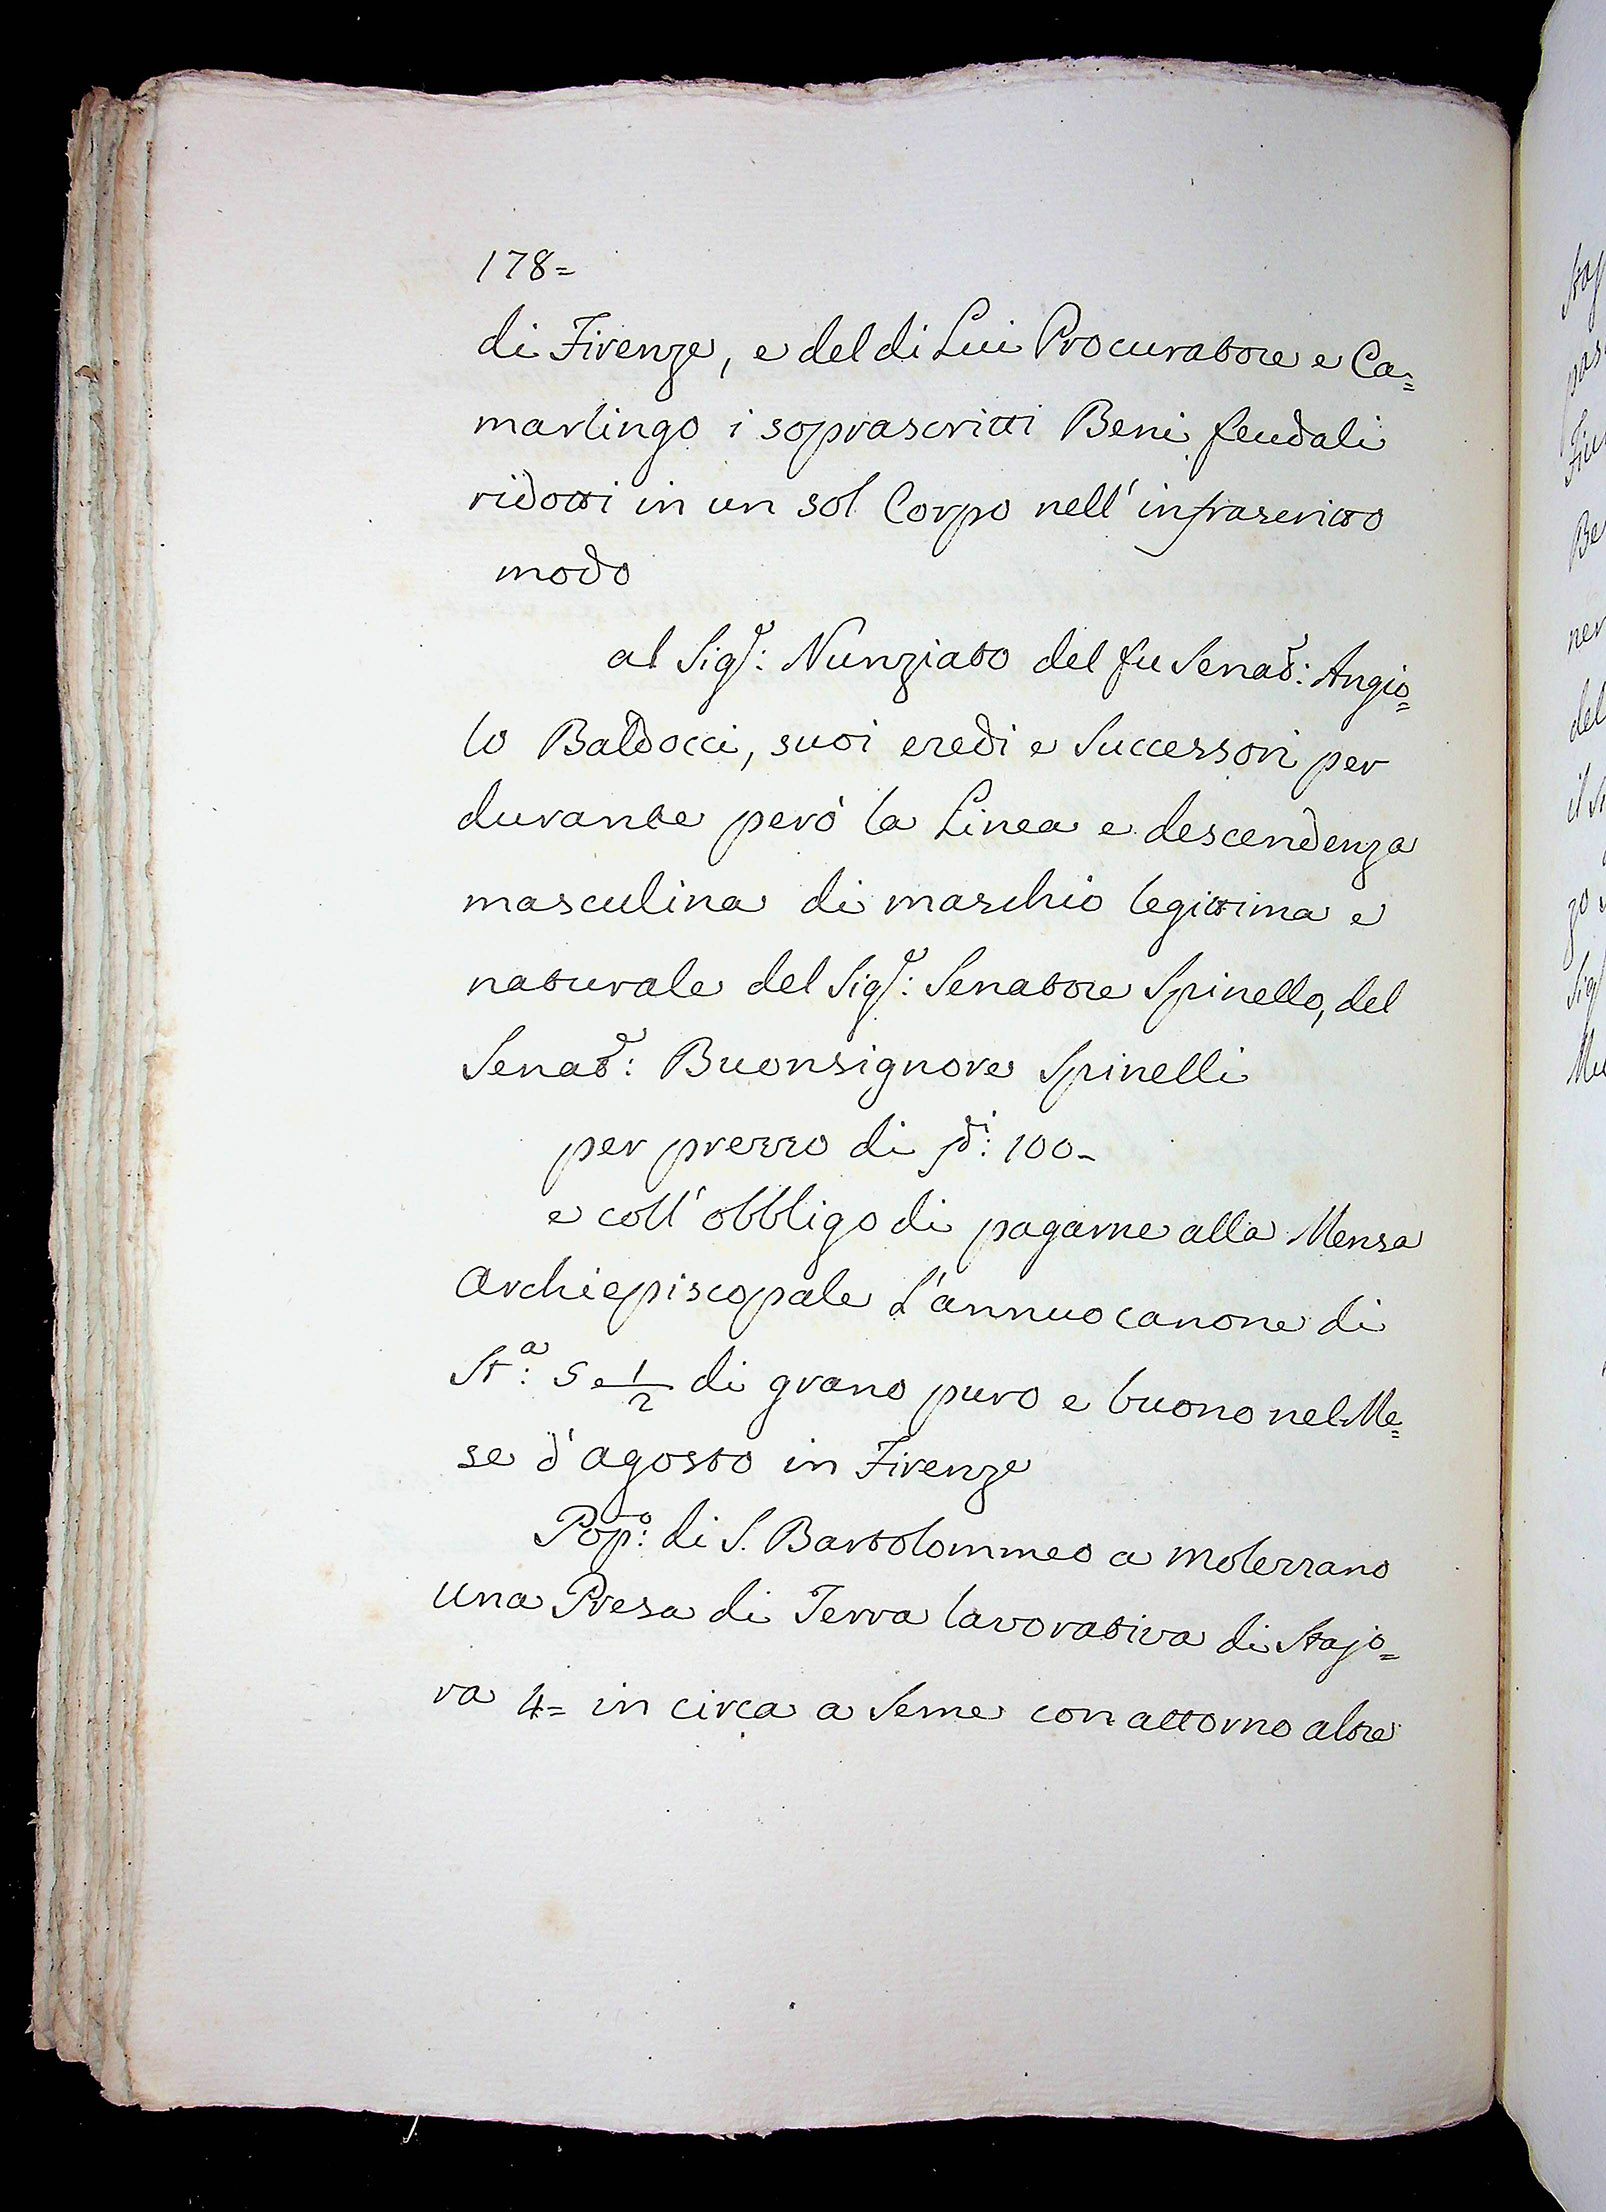 178=
di Firenze, e del di Lui Procuratore e Ca=
marlingo i soprascritti Beni feudali
ridotti in un sol Corpo nell' infrascritto
modo
al Sig.e: Nunziato del fu Senat.e: Angio=
lo Baldocci, suoi eredi e Successori per
durante però la Linea e descendenza
masculina di maschio legittima e
naturale del Sig.e: Senatore Spinello, del
Senat.e: Buonsignore Spinelli
per prezzo di di: 100-
e coll' obbligo di pagarne alla Mensa
Archiepiscopale L'annuo canone di
St.a: 5 e 1/2 di grano puro e buono nel Me=
se d'agosto in Firenze
Pop.o: di S. Bartolommeo a Molezzano
una Presa di Terra lavorativa di Stajo=
ra 4= in circa a Seme con attorno altre